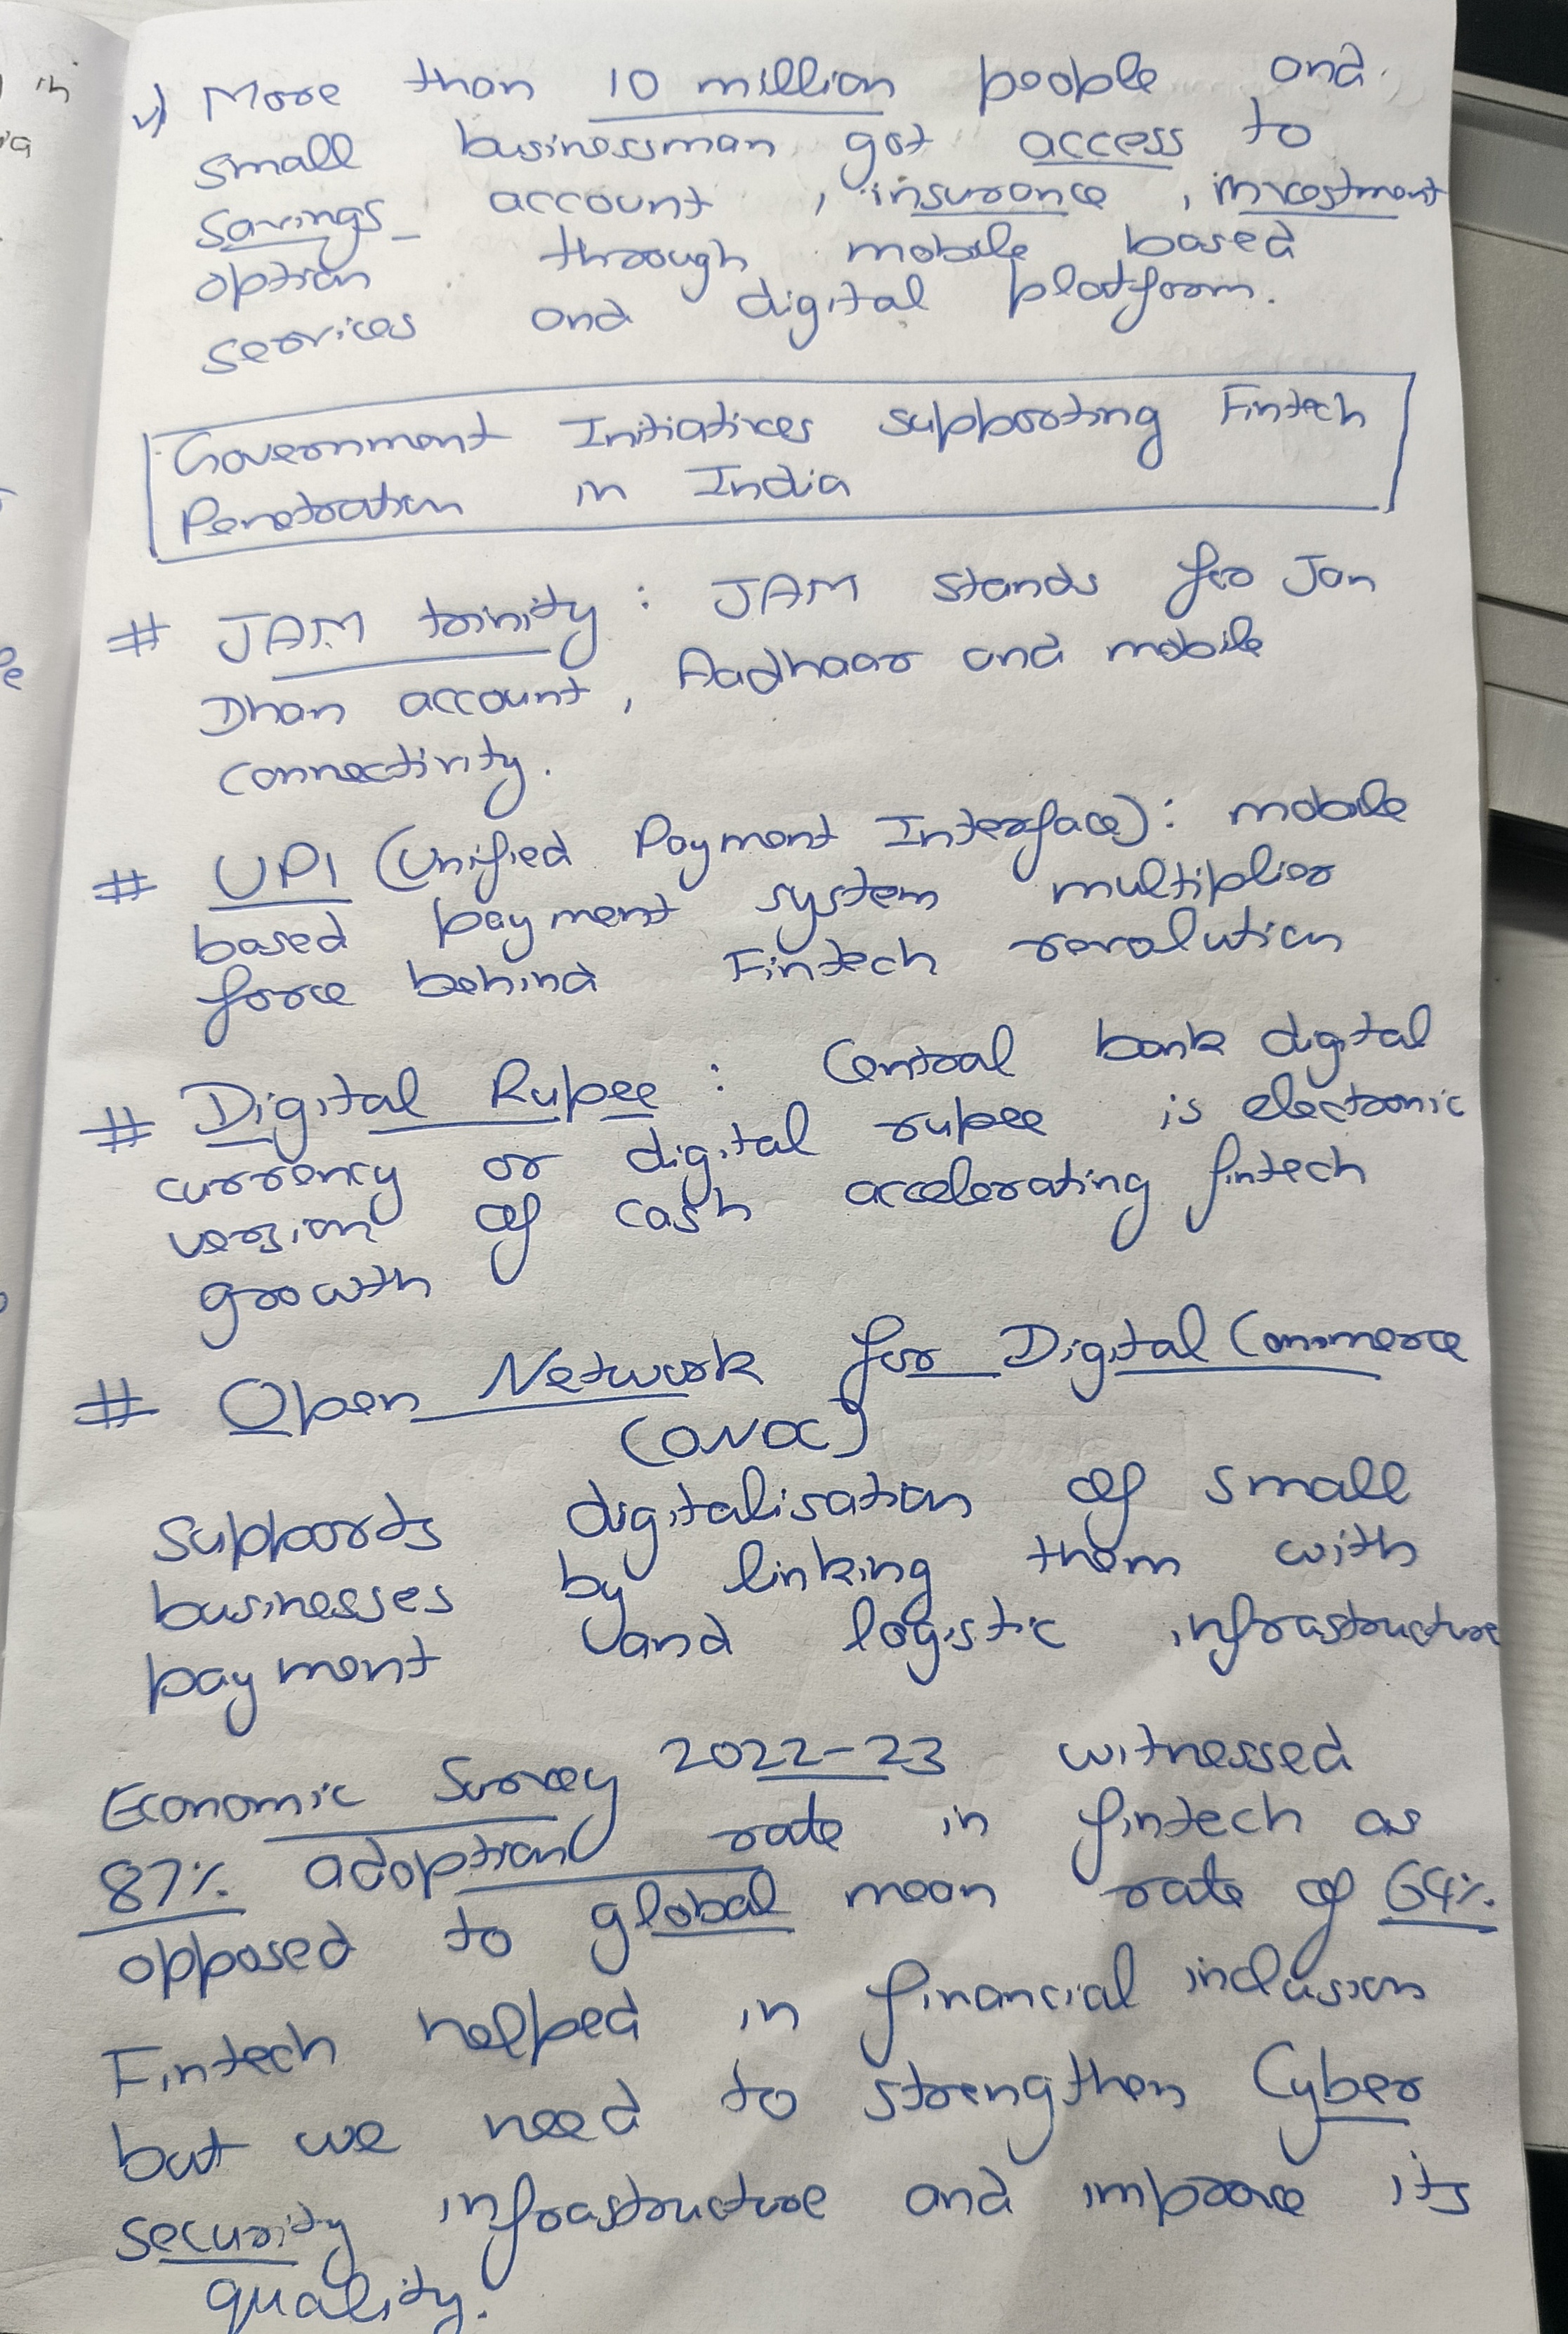 in
v) More than 10 million people and
small businessman got access to
savings account, insurance, investment
option through mobile based
services and digital platform.
Government Initiatives supporting Fintech
Penetration in India
# JAM trinity : JAM stands for Jan
Dhan account, Aadhaar and mobile
connectivity.
# UPI (Unified Payment Interface): mobile
based payment system multiplier
force behind Fintech revolution
# Digital Rupee : Central bank digital
currency or digital rupee is electronic
version of cash accelerating fintech
growth
# Open Network for Digital Commerce
(ONDC)
supports digitalisation of small
businesses by linking them with
payment and logistic infrastructure
Economic Survey 2022-23 witnessed
87% adoption rate in fintech as
opposed to global mean rate of 64%
Fintech helped in financial inclusion
but we need to strengthen Cyber
security infrastructure and improve its
quality.